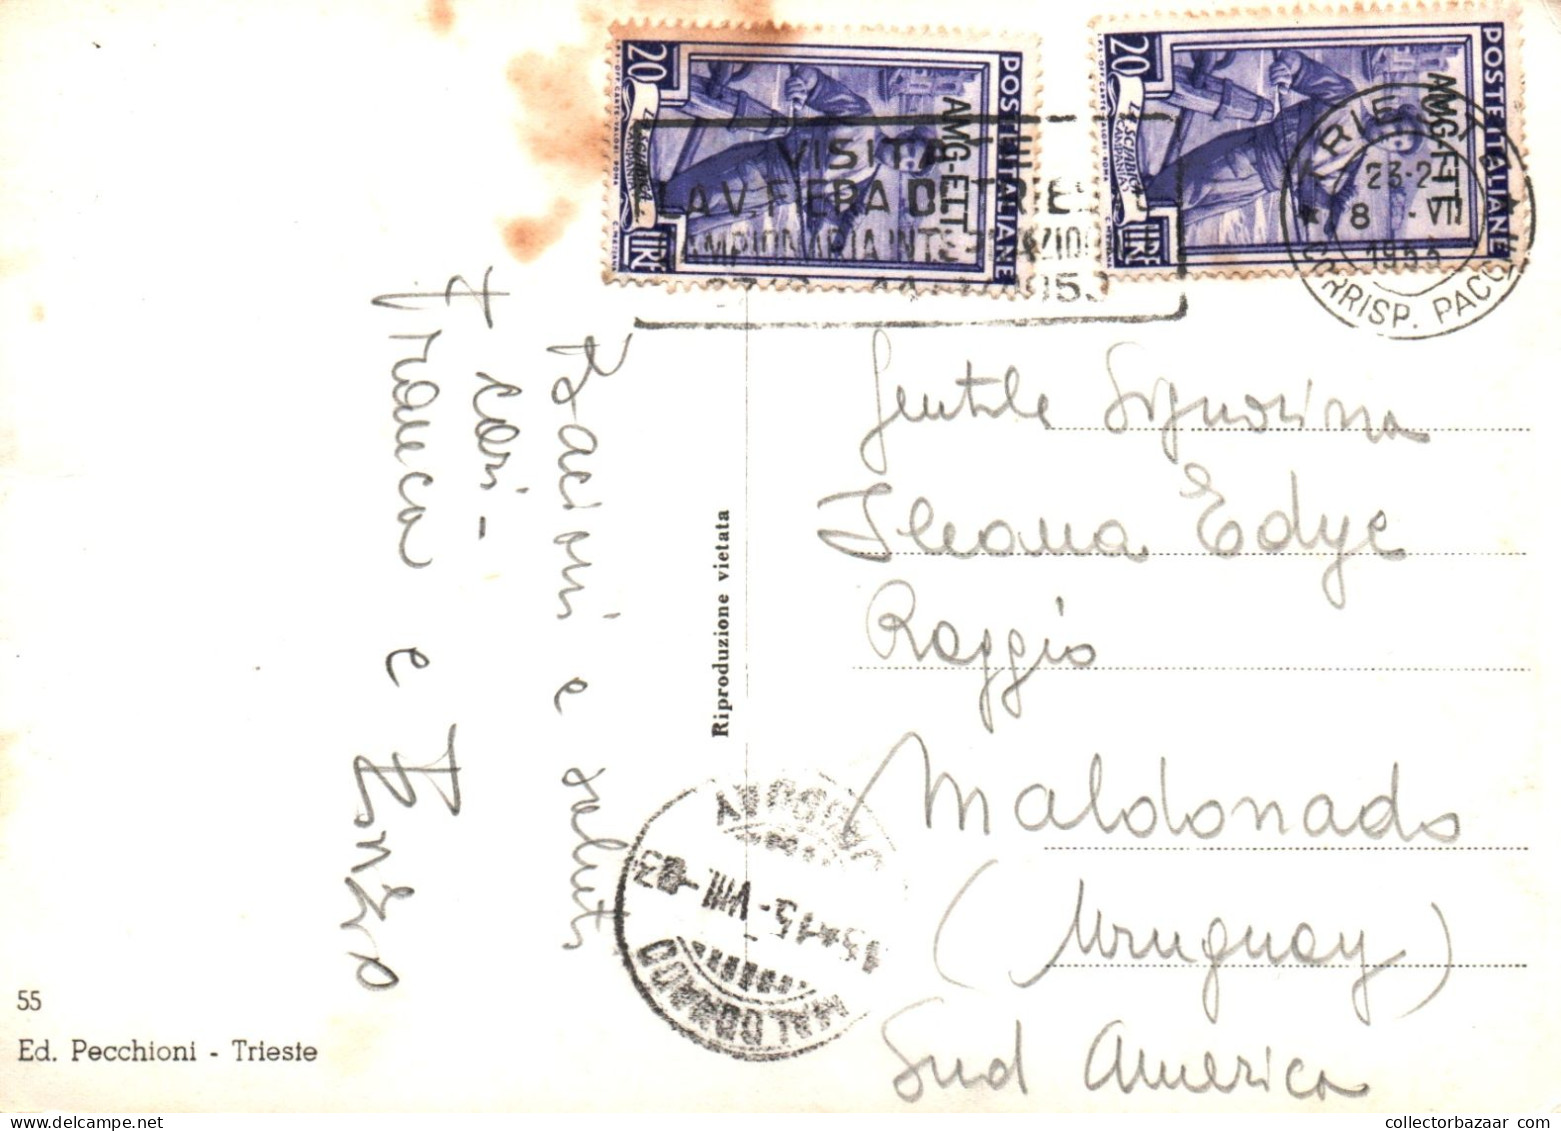 POSTE ITALIANE
AMG-FTT
20
LIRE
POSTE ITALIANE
AMG-FTT
20
LIRE
VISITA
LA V. FIERA DI TRIESTE
CAMPIONARIA INTERNAZION
1953
TRIESTE
23-2
8 - VII
1953
CORRISP. PACCHI
Bacioni e saluti
cari -
Franca e Renzo
Riproduzione vietata
Gentile Signorina
Ileana Edye
Raggio
Maldonado
(Uruguay)
Sud America
URUGUAY
15-VIII
MALDONADO
55
Ed. Pecchioni - Trieste
collectorbazaar.com